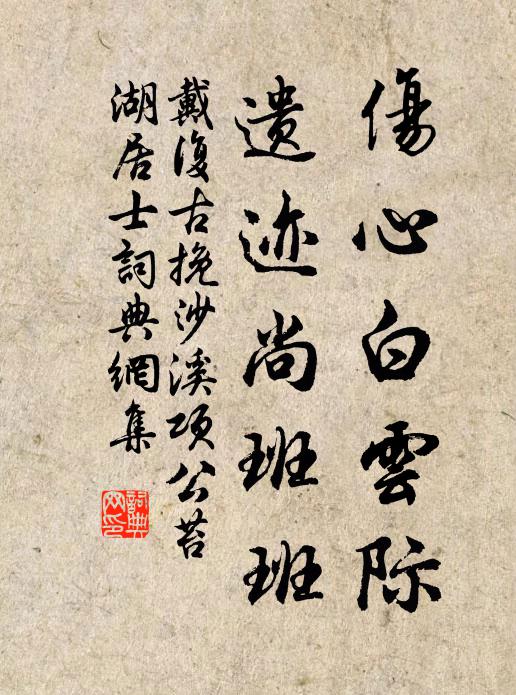 傷心白雲际
遗迹尚班班
戴復古挽沙溪項公苔
湖居士詞典網集
詞典网印